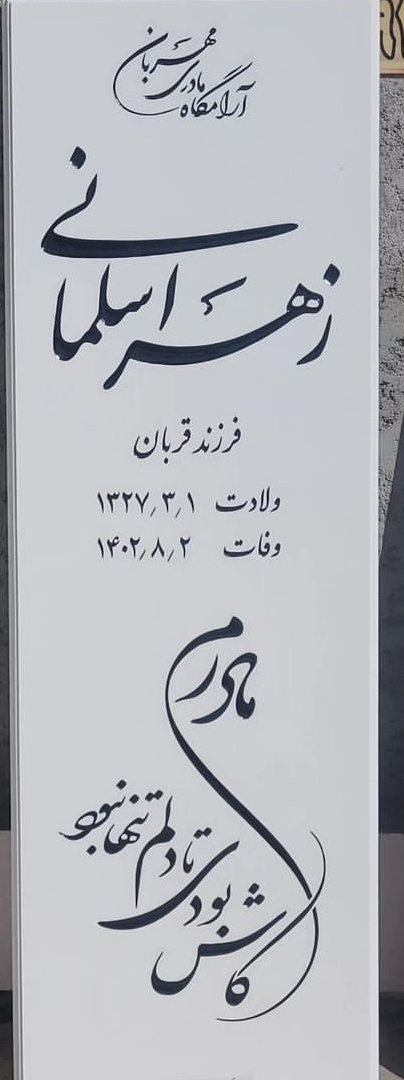 آرامگاه مادری مهربان
زهرا سلمانی
فرزند قربان
ولادت ۱۳۲۷٫۳٫۱
وفات ۱۴۰۲٫۸٫۲
مادرم
کاش بودی تا دلم تنها نبود